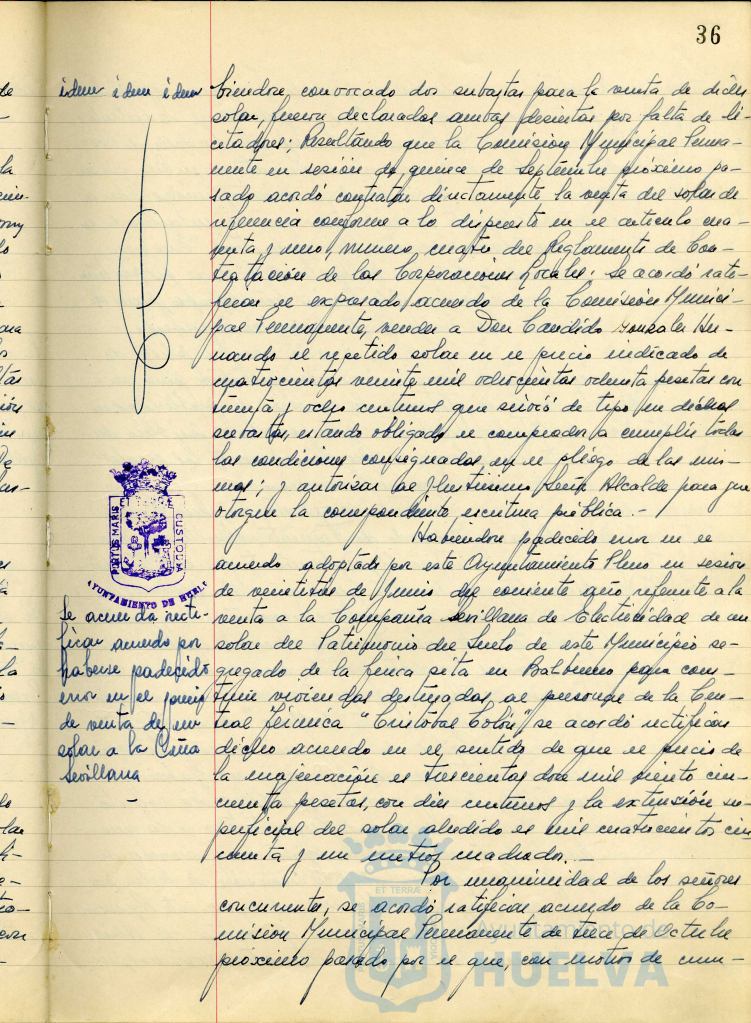 36
idem idem idem
biendose convocado dos subastas para la venta de dicho
solar, fueron declaradas ambas desiertas por falta de li-
citadores; Resultando que la Comisión Municipal Perma-
nente en sesión de quince de Septiembre próximo pa-
sado acordó contratar directamente la venta del solar de
referencia conforme a lo dispuesto en el artículo cua-
renta y uno, número cuatro del Reglamento de Con-
tratación de las Corporaciones Locales: se acordó rati-
ficar el expresado acuerdo de la Comisión Munici-
pal Permanente, vender a Don Candido Gonzalez Her-
nando el repetido solar en el precio indicado de
cuatrocientas veinte mil ochocientas ochenta pesetas con
y ocho centimos que sirvió de tipo en dichas
subastas, estando obligado el comprador a cumplir todas
las condiciones consignadas en el pliego de las mis-
mas; y autorizar al Ilustrisimo Señor Alcalde para que
otorgue la correspondiente escritura pública.-
Habiendose padecido error en el
acuerdo adoptado por este Ayuntamiento Pleno en sesion
de veintitres de Junio del corriente año, referente a la
venta a la Compañia Sevillana de Electricidad de un
solar del Patrimonio del Suelo de este Municipio se-
gregado de la finca sita en para cons-
truir viviendas destinadas al personal de la Cen-
tral Térmica "Cristobal Colón" se acordó rectificar
dicho acuerdo en el sentido de que el precio de
la enajenación es trescientas doce mil ciento cin-
cuenta pesetas, con diez centimos y la extensión su-
perficial del solar aludido es mil cuatrocientos cin
cuenta y un metros cuadrados.-
Por unanimidad de los señores
concurrentes, se acordó ratificar acuerdo de la Co-
mision Municipal Permanente de trece de Octubre
próximo pasado por el que, con motivo de cum-
PORTUS MARIS CUSTODIA
AYUNTAMIENTO DE HUELVA
Se acuerda recti-
ficar acuerdo por
haberse padecido
error en el precio
de venta de un
solar a la Cñia
Sevillana
-
ET TERRAE
Ayuntamiento de
HUELVA